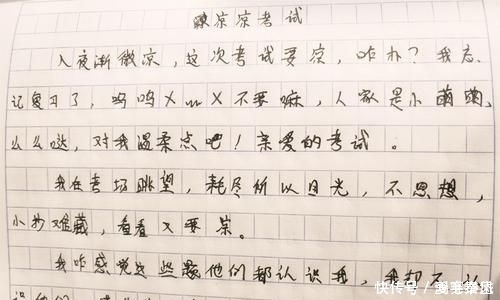 凉凉考试
入夜渐微凉，这次考试要凉，咋办？我忘
记复习了，呜呜X﹏X不要嘛，人家是小萌萌，
么么哒，对我温柔点吧！亲爱的考试。
我在考场眺望，耗尽所以目光，不思想，
小抄难藏，看看又要凉。
我咋感觉这些题他们都认识我，我却不认
识他们
快传号／